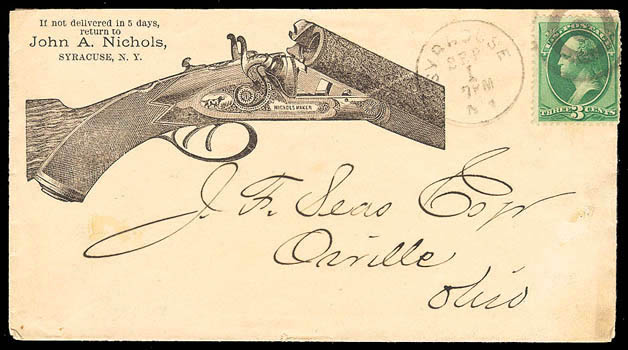 If not delivered in 5 days,
return to
John A. Nichols,
SYRACUSE, N. Y.
NICHOLS MAKER
SYRACUSE
SEP
1
7 PM
N.Y.
THREE 3 CENTS
J. F. Seas Esqr
Orville
Ohio